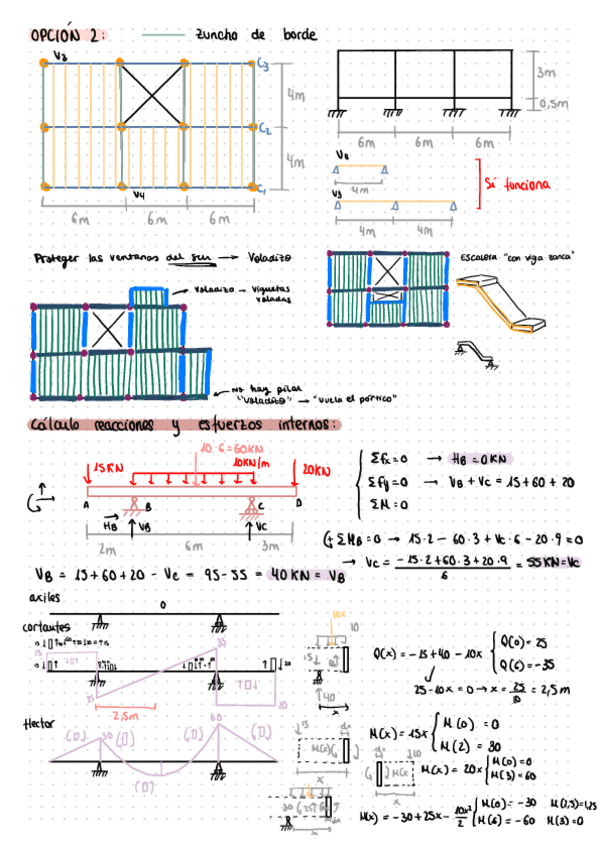 OPCIÓN 2:
zuncho de borde
V3
C3
4m
C2
4m
V4
C1
6m
6m
6m
3m
0,5m
6m
6m
6m
4m
V3
4m
4m
Sí funciona
Proteger las ventanas del sur → Voladizo
voladizo → viguetas voladas
ESCALERA "con viga zanca"
No hay pilar
"voladizo" → "vuela el pórtico"
Cálculo reacciones y esfuerzos internos:
10·6=60KN
15KN
10KN/m
20KN
A
B
C
D
HB
VB
VC
2m
6m
3m
Σfx=0 → HB=0KN
Σfy=0 → VB+VC=15+60+20
ΣM=0
ΣMB=0 → 15·2-60·3+Vc·6-20·9=0
→ Vc= -15·2+60·3+20·9 / 6 = 55KN=Vc
VB = 15+60+20-Vc = 95-55 = 40KN=VB
axiles
0
cortantes
15
35
25
20
2,5m
10x
10
15
40
x
Q(x)=-15+40-10x
Q(0)=25
Q(6)=-35
25-10x=0 → x=25/10=2,5m
flector
30
60
15
M(x)
x
M(x)=15x
M(0)=0
M(2)=30
M(x)
x
M(x)=20x
M(0)=0
M(3)=60
30
25
x
M(x)=-30+25x-10x²/2
M(0)=-30
M(2,5)=1,25
M(6)=-60
M(3)=0